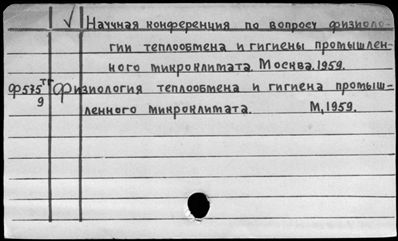 √ Научная конференция по вопросу физиоло-
гии теплообмена и гигиены промышлен-
ного микроклимата. Москва. 1959.
Ф575 тг Физиология теплообмена и гигиена промыш-
9 ленного микроклимата. М, 1959.